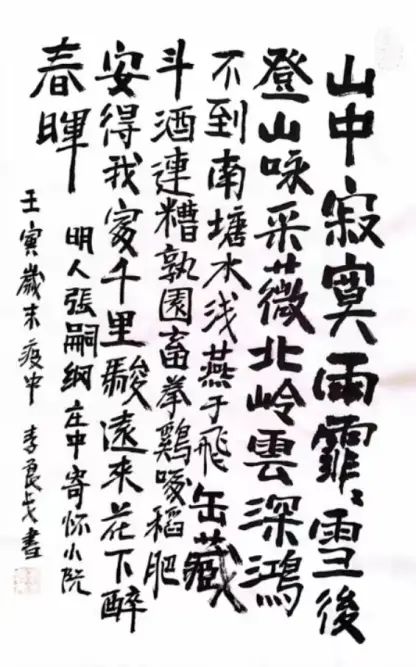 山中寂寞雨霏〻雪後
登山咏采薇北岭雲深鴻
不到南塘水浅燕于飛缶藏
斗酒連糟孰園畜拳鷄稻肥
安得我家千里駿遠來花下醉
春暉
明人張嗣綱庄中寄怀小院
壬寅歲末疫中 李良書